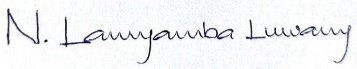 N. Lamyamba Luwang